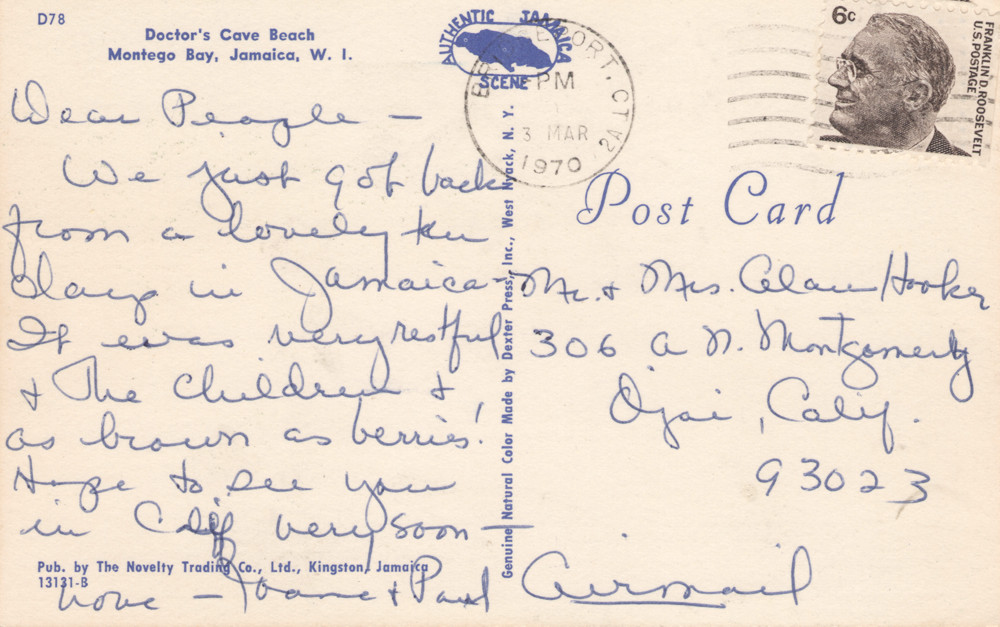 D78
Doctor's Cave Beach
Montego Bay, Jamaica, W. I.
AUTHENTIC JAMAICA
SCENE
PM
3 MAR
1970
6c
FRANKLIN D. ROOSEVELT
U.S. POSTAGE
Dear People –
We just got back
from a lovely ten
days in Jamaica –
It was very restful
& The Children & I
as brown as berries!
Hope to see you
in Calif very soon –
Love – Joanne & Paul
Pub. by The Novelty Trading Co., Ltd., Kingston, Jamaica
13131-B
Genuine Natural Color Made by Dexter Press, Inc., West Nyack, N. Y.
Post Card
Mr. & Mrs. Alan Hooker
306 A N. Montgomery
Ojai, Calif.
93023
Airmail